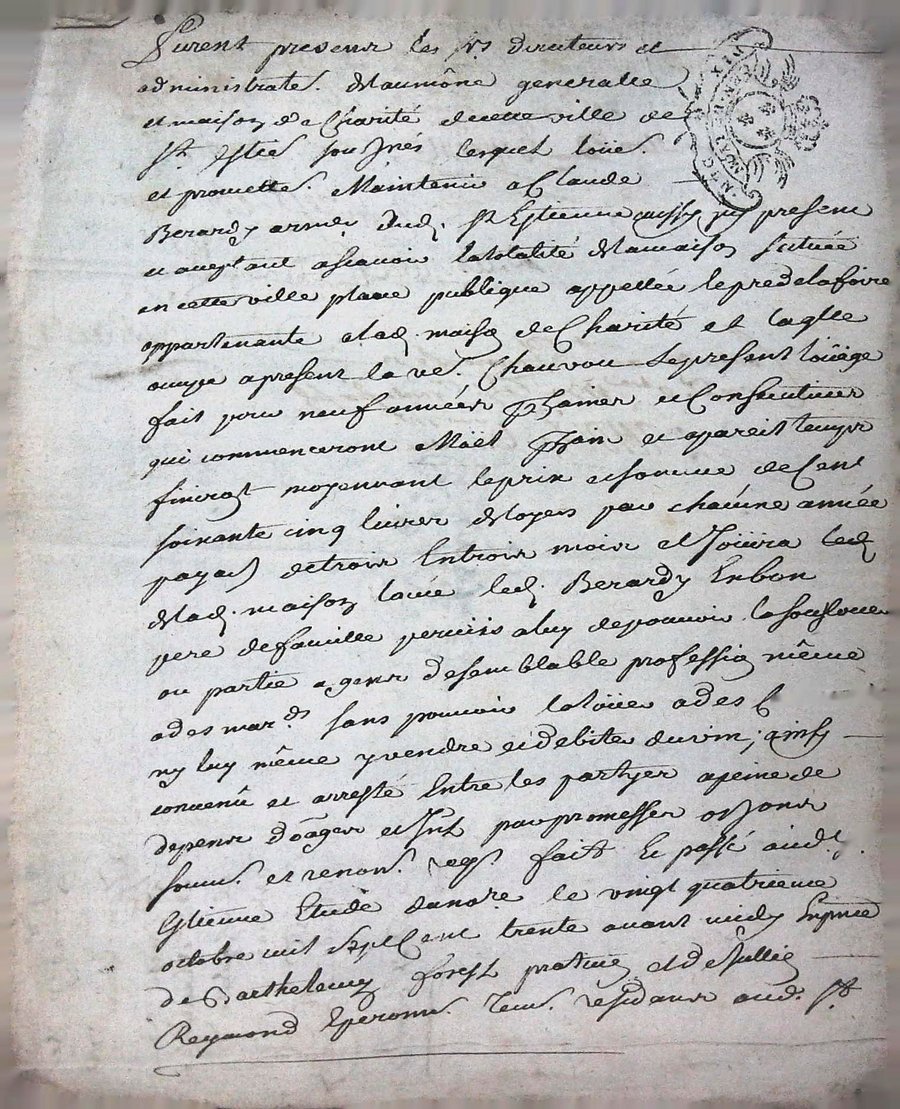 Furent presens les srs directeurs et
administrate. de laumône generalle
et maison de Charité de cette ville de
st Estie sousnés lesquel loüe.
et promette. Maintenir a Claude
Berardy armr dud. st Estienne aussy present
et acceptant asscavoir la totalité de la maison scituée
en cette ville place publique appellée le pred de la foire
appartenante a lad. maison de Charité et laqlle
occupe a present la ve. Chauvou le present loüage
fait pour neuf années pchaines et Consecutives
qui commenceront a Noël pchain et apareil temps
finiront moyennant le prix et somme de Cent
soixante cinq livres de loyers par chacune année
payab de trois En trois mois et Joüira led
de lad. maison loüée led. Berardy En bon
pere de famille permis a luy de pouvoir la souslouer
ou partie a gens de semblable profession même
a des mar.ds sans pouvoir la loüer a des C
ny luy même y vendre et debiter du vin; ainsy
convenu et arresté Entre les partyes a peine de
depens domages et Intt par promesses
soum. et renon. fait Et passé aud. st
Estienne Etude du nore le vingt quatrieme
octobre mil sept Cent trente avant midy En pnce
de Barthelemy forest praticien et de Jullien
Reymond Eperonn. Tem. residans aud. st